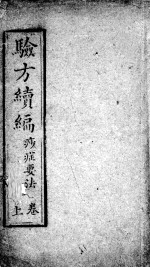 驗方續編
痧症要法
卷上